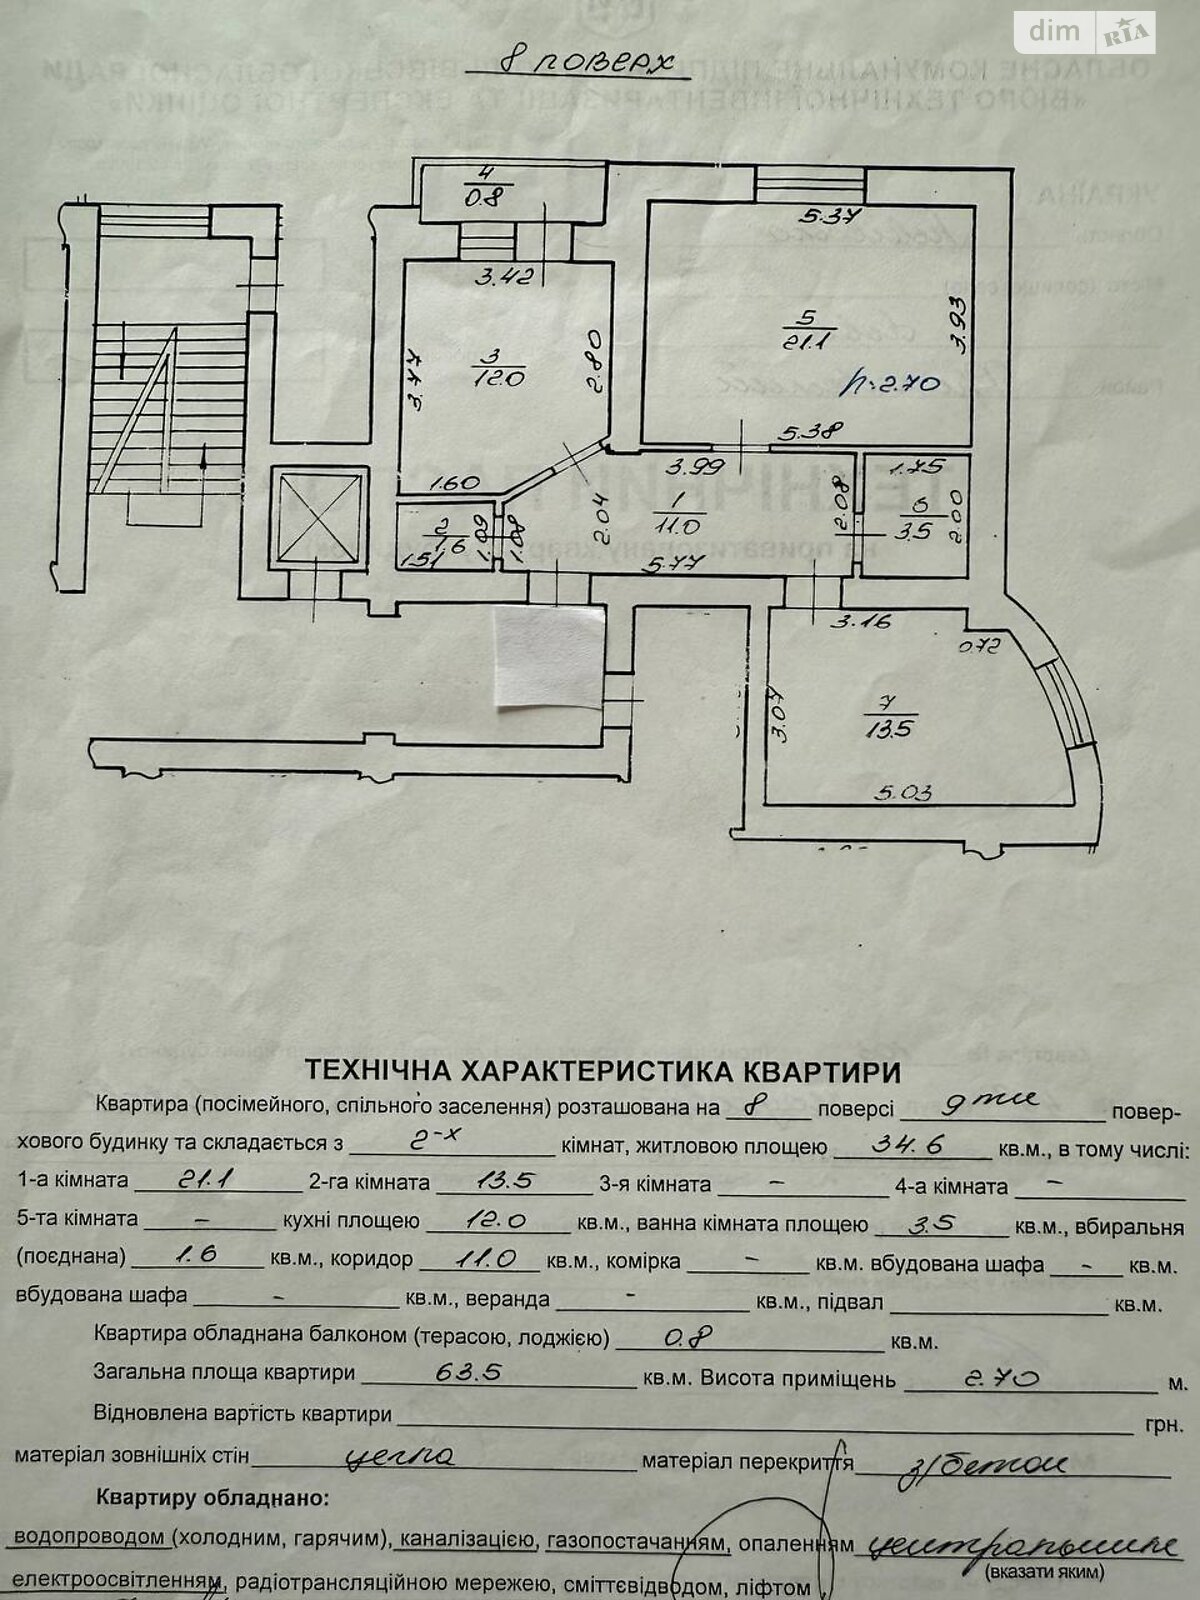 dim RIA
8 поверх
4
0.8
5.37
3.42
3.93
5
21.1
3
12.0
2.80
3.77
h=2.70
5.38
1.60
3.99
1.75
2.08
6
3.5
2.00
1
11.0
2.04
2
1.6
1.09
1.08
1.51
5.77
3.16
0.72
3.07
7
13.5
5.03
ТЕХНІЧНА ХАРАКТЕРИСТИКА КВАРТИРИ
Квартира (посімейного, спільного заселення) розташована на 8 поверсі 9ти повер-
хового будинку та складається з 2-х кімнат, житловою площею 34.6 кв.м., в тому числі:
1-а кімната 21.1 2-га кімната 13.5 3-я кімната - 4-а кімната -
5-та кімната - кухні площею 12.0 кв.м., ванна кімната площею 3.5 кв.м., вбиральня
(поєднана) 1.6 кв.м., коридор 11.0 кв.м., комірка - кв.м. вбудована шафа - кв.м.
вбудована шафа - кв.м., веранда - кв.м., підвал кв.м.
Квартира обладнана балконом (терасою, лоджією) 0.8 кв.м.
Загальна площа квартири 63.5 кв.м. Висота приміщень 2.70 м.
Відновлена вартість квартири грн.
матеріал зовнішніх стін цегла матеріал перекриття з/бетон
Квартиру обладнано:
водопроводом (холодним, гарячим), каналізацією, газопостачанням, опаленням центральние
(вказати яким)
електроосвітленням, радіотрансляційною мережею, сміттєвідводом, ліфтом